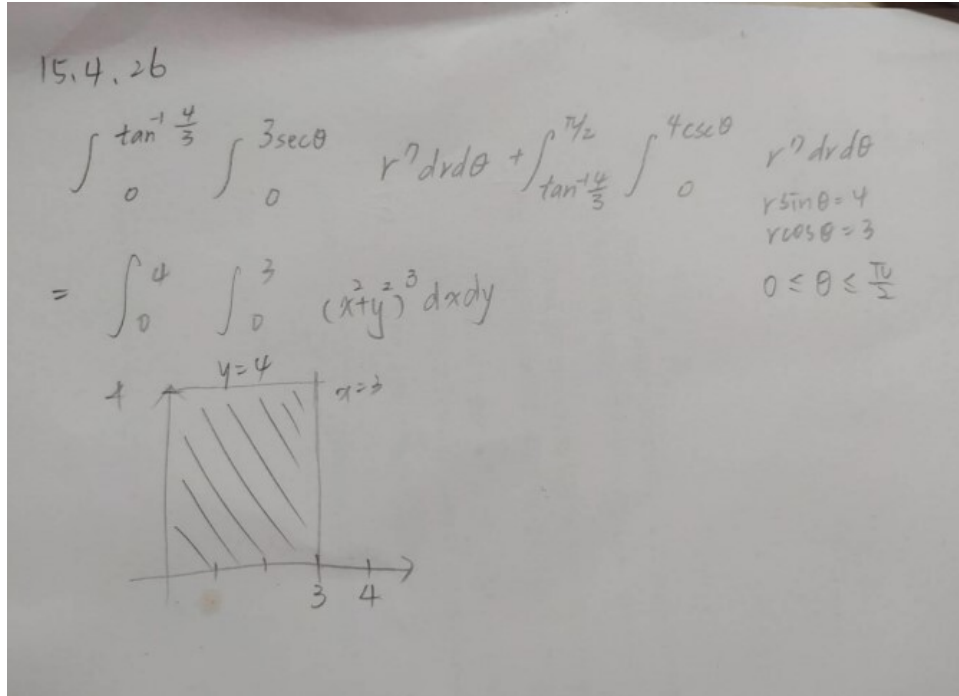 15.4.26
∫₀^{tan⁻¹ 4/3} ∫₀^{3secθ} r⁷drdθ + ∫_{tan⁻¹ 4/3}^{π/2} ∫₀^{4cscθ} r⁷drdθ
rsinθ=4
rcosθ=3
0≤θ≤π/2
= ∫₀⁴ ∫₀³ (x²+y²)³dxdy
4
y=4
x=3
3 4